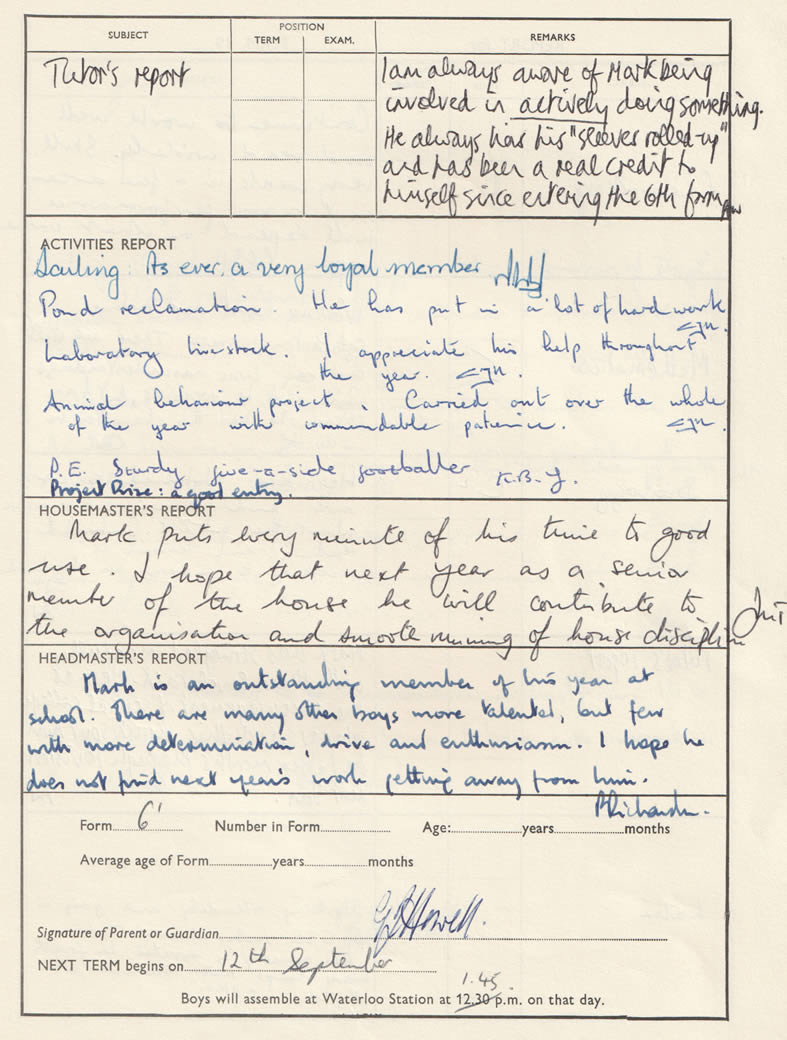 SUBJECT POSITION REMARKS
TERM EXAM.
Tutor's report
I am always aware of Mark being
involved in actively doing something.
He always has his "sleeves rolled-up"
and has been a real credit to
himself since entering the 6th form
ACTIVITIES REPORT
Sailing: As ever, a very loyal member
Pond reclamation. He has put in a lot of hard work
Laboratory livestock. I appreciate his help throughout
the year.
Animal behaviour project. Carried out over the whole
of the year with commendable patience.
P.E. Sturdy five-a-side footballer K.B.Y.
Project Prize: a good entry.
HOUSEMASTER'S REPORT
Mark puts every minute of his time to good
use. I hope that next year as a senior
member of the house he will contribute to
the organisation and smooth running of house discipline
HEADMASTER'S REPORT
Mark is an outstanding member of his year at
school. There are many other boys more talented, but few
with more determination, drive and enthusiasm. I hope he
does not find next year's work getting away from him.
Form 6' Number in Form Age: years months
Average age of Form years months
Signature of Parent or Guardian G Howell.
NEXT TERM begins on 12th September
1.45
Boys will assemble at Waterloo Station at 12.30 p.m. on that day.